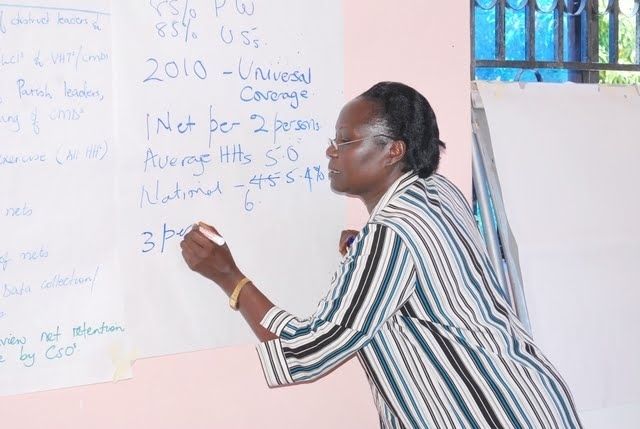 of district leaders &
LCI² & VHT²/CMDs
Parish leaders,
of CMDs
exercise (All HH²)
nets
of nets
Data collection/
view net retention
by CSO²
85% PW
85% U5s
2010 - Universal
Coverage
1 Net per 2 persons
Average HHs 5.0
National - 45 5.4%
6.
3 pe